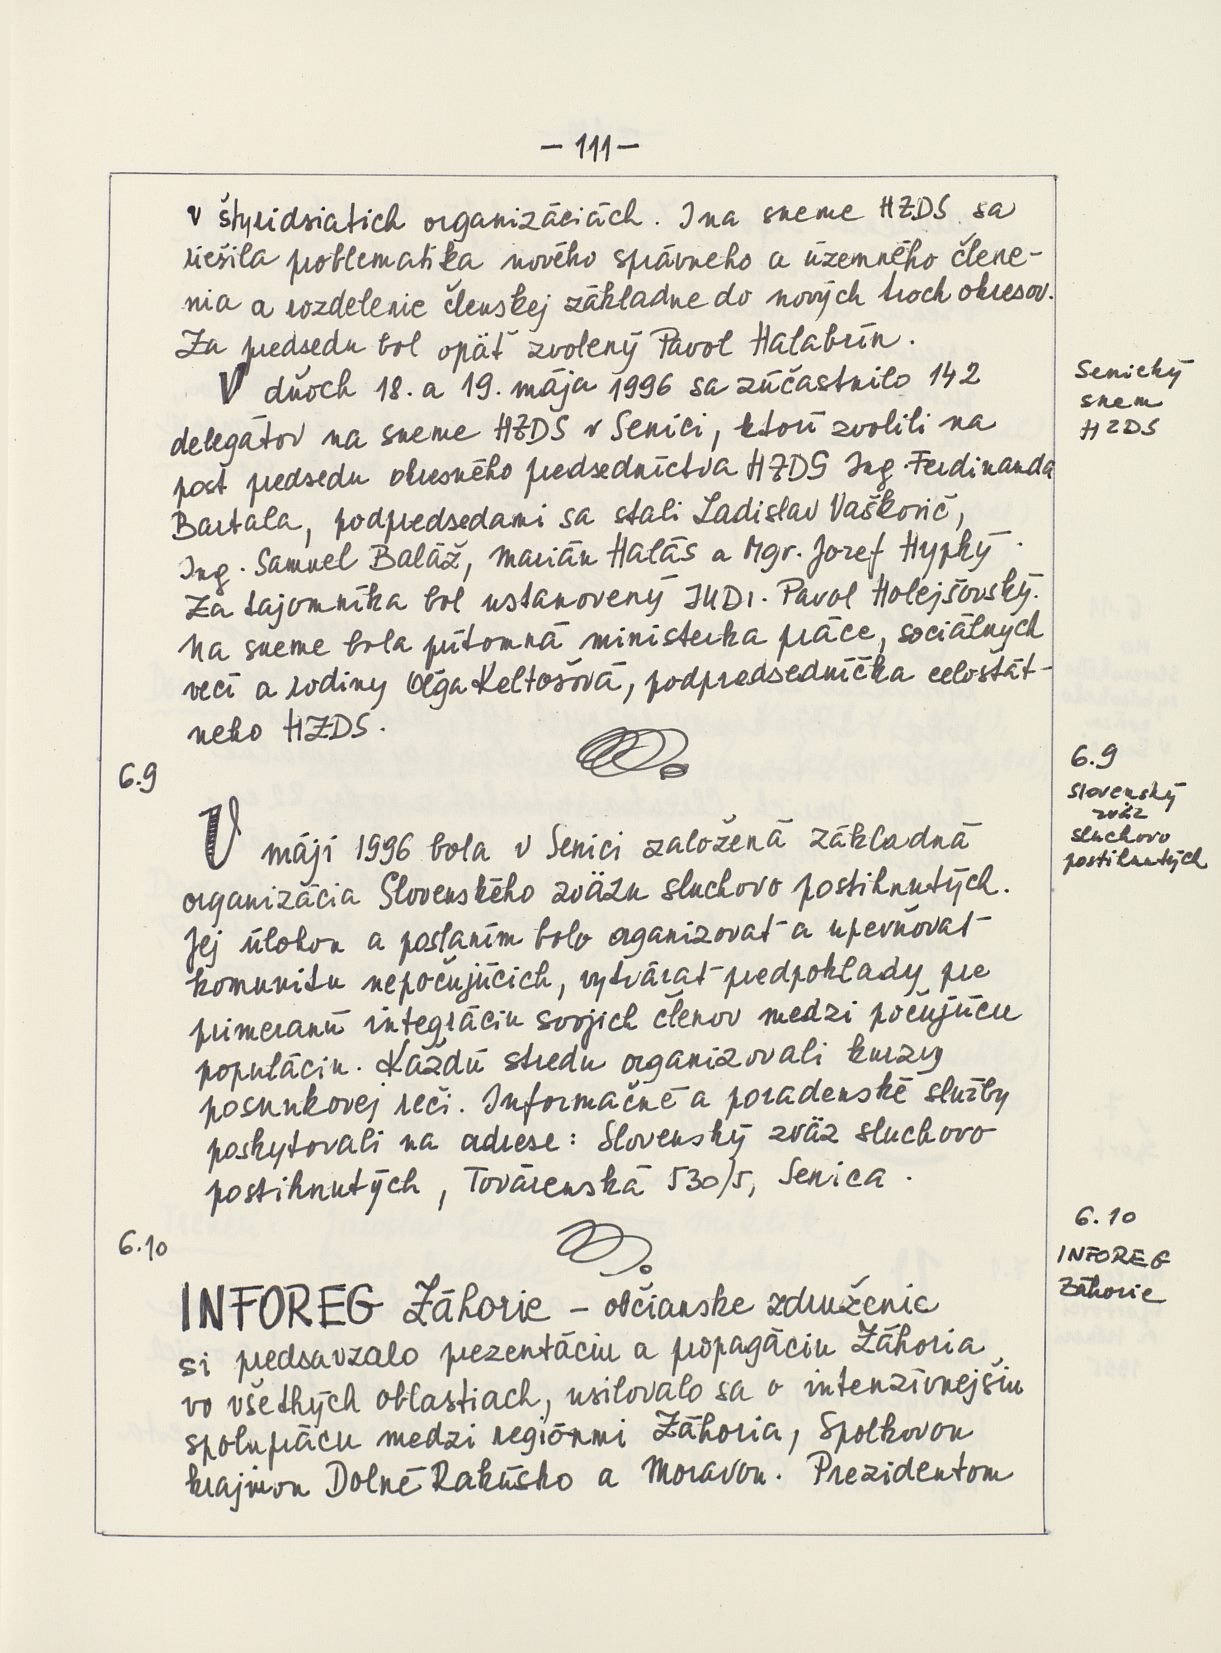 – 111 –
v štyridsiatich organizáciách. I na sneme HZDS sa
riešila problematika nového správneho a územného člene-
nia a rozdelenie členskej základne do nových troch okresov.
Za predsedu bol opäť zvolený Pavol Halabrín.
V dňoch 18. a 19. mája 1996 sa zúčastnilo 142
delegátov na sneme HZDS v Senici, ktorí zvolili na
post predsedu okresného predsedníctva HZDS Ing. Ferdinanda
Bartala, podpredsedami sa stali Ladislav Vaškovič,
Ing. Samuel Baláž, Marián Halás a Mgr. Jozef Hypký.
Za tajomníka bol ustanovený JUDr. Pavol Holejšovský.
Na sneme bola prítomná ministerka práce, sociálnych
vecí a rodiny Oľga Keltošová, podpredsedníčka celoštát-
neho HZDS.
Senický
snem
HZDS
6.9
V máji 1996 bola v Senici založená základná
organizácia Slovenského zväzu sluchovo postihnutých.
Jej úlohou a poslaním bolo organizovať a upevňovať
komunitu nepočujúcich, vytvárať predpoklady pre
primeranú integráciu svojich členov medzi počujúcu
populáciu. Každú stredu organizovali kurzy
posunkovej reči. Informačné a poradenské služby
poskytovali na adrese: Slovenský zväz sluchovo
postihnutých, Továrenská 530/5, Senica.
6.9
Slovenský
zväz
sluchovo
postihnutých
6.10
INFOREG Záhorie – občianske združenie
si predsavzalo prezentáciu a propagáciu Záhoria
vo všetkých oblastiach, usilovalo sa o intenzívnejšiu
spoluprácu medzi regiónmi Záhoria, Spolkovou
krajinou Dolné Rakúsko a Moravou. Prezidentom
6.10
INFOREG
Záhorie